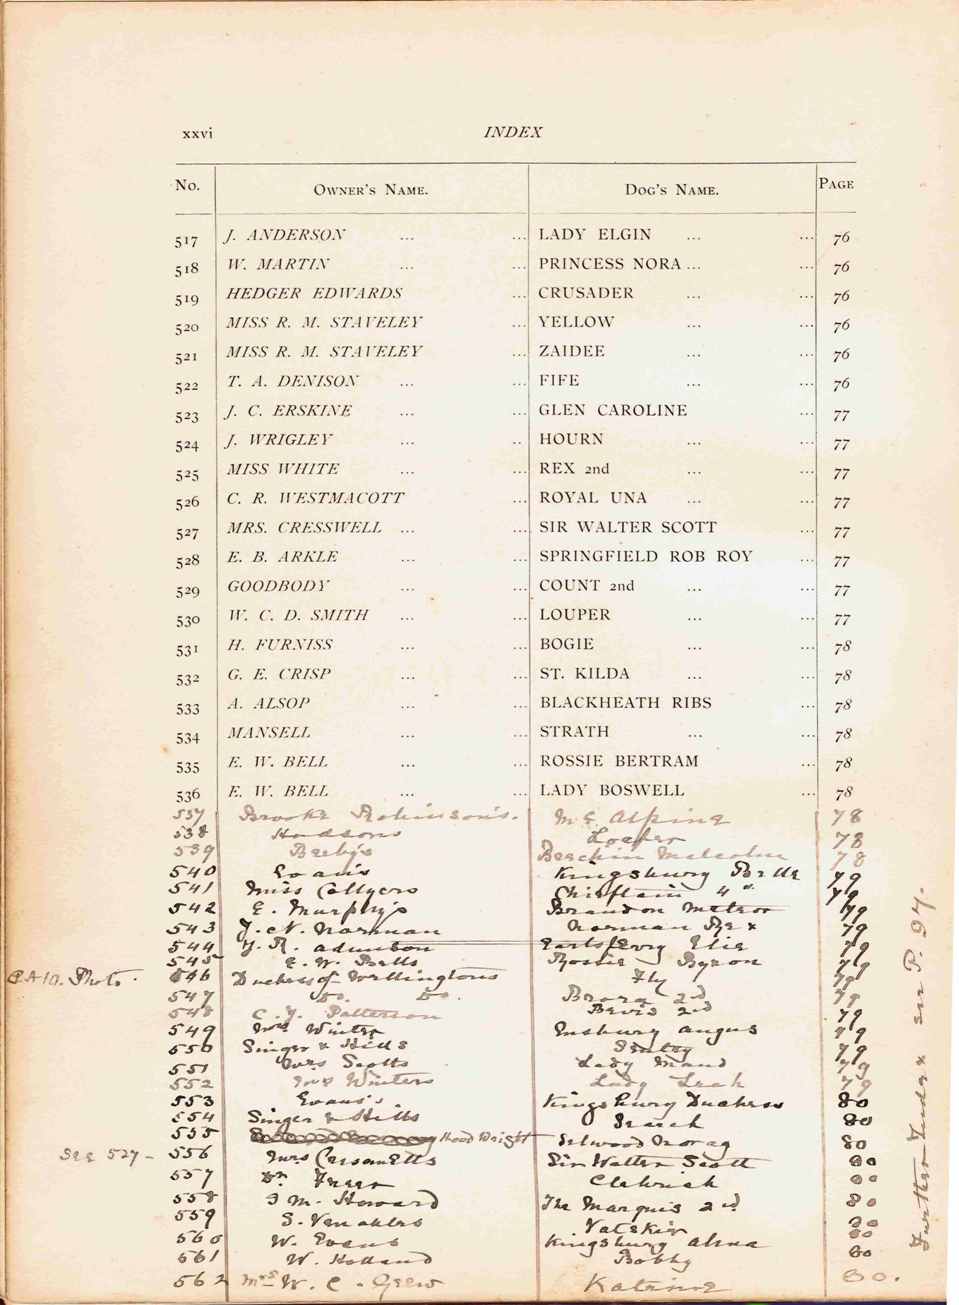 xxvi INDEX
No. OWNER'S NAME. DOG'S NAME. PAGE
517 J. ANDERSON ... ... LADY ELGIN ... ... 76
518 W. MARTIN ... ... PRINCESS NORA ... ... 76
519 HEDGER EDWARDS ... CRUSADER ... ... 76
520 MISS R. M. STAVELEY ... YELLOW ... ... 76
521 MISS R. M. STAVELEY ... ZAIDEE ... ... 76
522 T. A. DENISON ... ... FIFE ... ... 76
523 J. C. ERSKINE ... ... GLEN CAROLINE ... 77
524 J. WRIGLEY ... .. HOURN ... ... 77
525 MISS WHITE ... ... REX 2nd ... ... 77
526 C. R. WESTMACOTT ... ROYAL UNA ... ... 77
527 MRS. CRESSWELL ... ... SIR WALTER SCOTT ... 77
528 E. B. ARKLE ... ... SPRINGFIELD ROB ROY ... 77
529 GOODBODY ... ... COUNT 2nd ... ... 77
530 W. C. D. SMITH ... ... LOUPER ... ... 77
531 H. FURNISS ... ... BOGIE ... ... 78
532 G. E. CRISP ... ... ST. KILDA ... ... 78
533 A. ALSOP ... ... BLACKHEATH RIBS ... 78
534 MANSELL ... ... STRATH ... ... 78
535 E. W. BELL ... ... ROSSIE BERTRAM ... 78
536 E. W. BELL ... ... LADY BOSWELL ... 78
537 Brooke Robinson's. Mc Alpine 78
538 Hodsons Loafer 78
539 Beeby's Malcolm 78
540 Evans Kingsbury Belle 79
541 Miss Collyers Chieftain 4th 79
542 E. Murphy's Brandon Meteor 79
543 J. N. Norman Norman Rex 79
544 J. R. Elsie 79
545 E. W. Bells Rossie Byron 79
P.A/10. Photo. 546 Duchess of Wellingtons Fly 79
547 Do. Do. Brora 2nd 79
548 C. J. Patterson Bevis 2nd 79
549 Mrs Winter Angus 79
550 Singer & Hills 79
551 Mrs Scotts Lady Maud 79
552 Mrs Winters Lady Leah 79
553 Evans's. Kingsbury Duchess 80
554 Singer & Hills Search 80
555 Hood Wright Selwood Morag 80
See 527 - 556 Mrs Sir Walter Scott 80
557 Dr. Cluwick 80
558 J. M. Howard The Marquis 2nd 80
559 S. Venables 80
560 W. Evans Kingsbury Alma 80
561 W. Holland Bobby 80
562 Mrs W. C. Grew Katrine 80.
Further Index on P. 97.